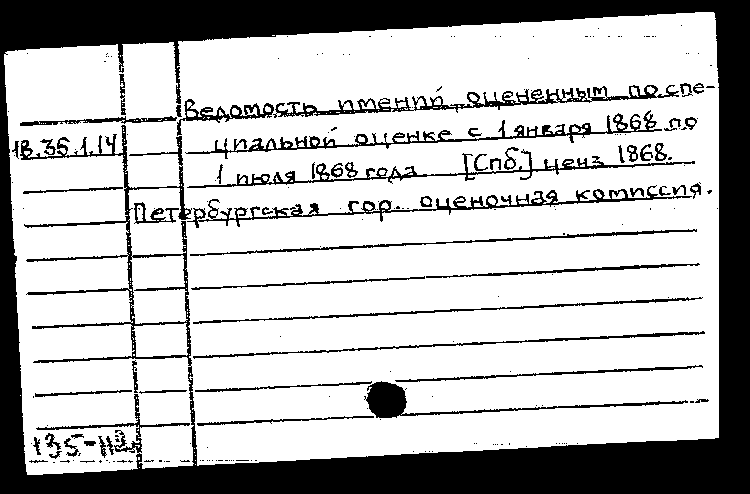 Ведомость имений, оцененным по спе-
18.35.1.14 циальной оценке с 1 января 1868 по
1 июля 1868 года [Спб.] ценз 1868.
Петербургская гор. оценочная комиссия.